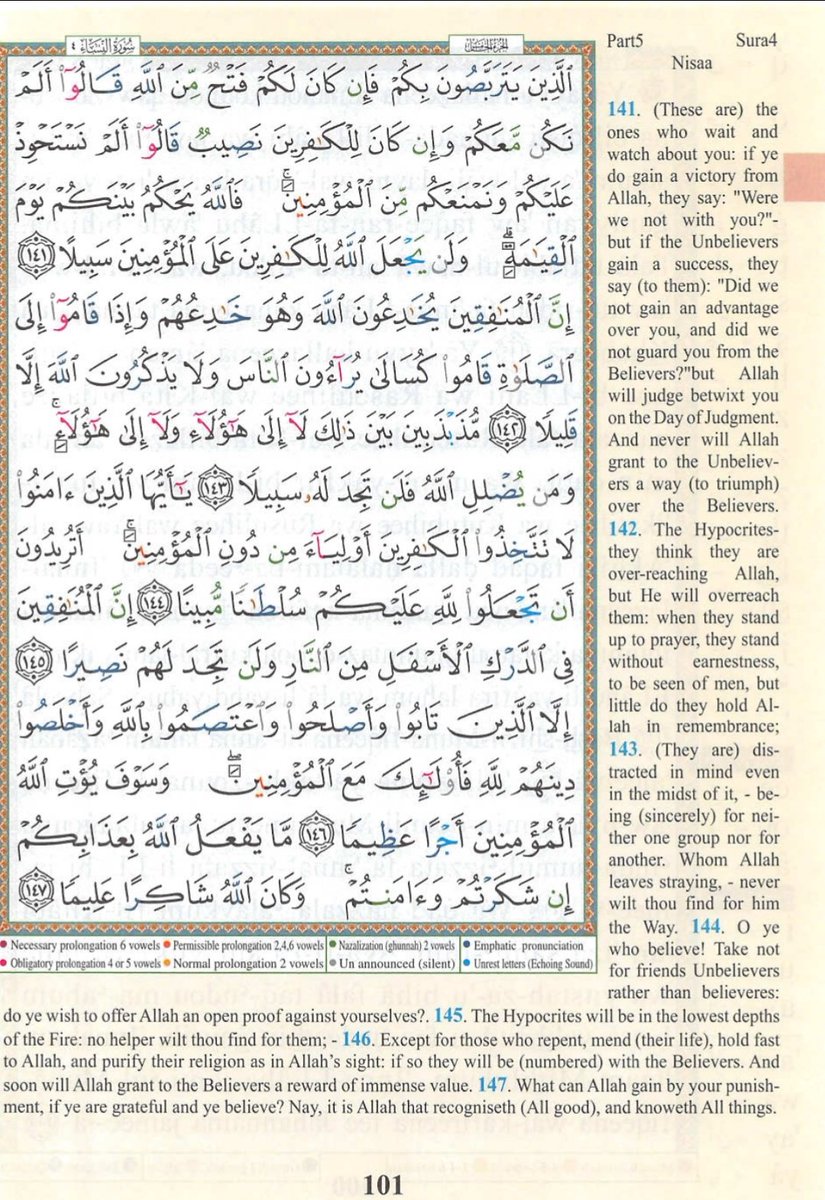 سُورَةُ النِّسَاءِ ٤
الجُزءُ الخَامِسُ
ٱلَّذِينَ يَتَرَبَّصُونَ بِكُمْ فَإِن كَانَ لَكُمْ فَتْحٌ مِّنَ ٱللَّهِ قَالُوٓا۟ أَلَمْ
نَكُن مَّعَكُمْ وَإِن كَانَ لِلْكَٰفِرِينَ نَصِيبٌ قَالُوٓا۟ أَلَمْ نَسْتَحْوِذْ
عَلَيْكُمْ وَنَمْنَعْكُم مِّنَ ٱلْمُؤْمِنِينَ ۚ فَٱللَّهُ يَحْكُمُ بَيْنَكُمْ يَوْمَ
ٱلْقِيَٰمَةِ ۗ وَلَن يَجْعَلَ ٱللَّهُ لِلْكَٰفِرِينَ عَلَى ٱلْمُؤْمِنِينَ سَبِيلًا ١٤١
إِنَّ ٱلْمُنَٰفِقِينَ يُخَٰدِعُونَ ٱللَّهَ وَهُوَ خَٰدِعُهُمْ وَإِذَا قَامُوٓا۟ إِلَى
ٱلصَّلَوٰةِ قَامُوا۟ كُسَالَىٰ يُرَآءُونَ ٱلنَّاسَ وَلَا يَذْكُرُونَ ٱللَّهَ إِلَّا
قَلِيلًا ١٤٢ مُّذَبْذَبِينَ بَيْنَ ذَٰلِكَ لَآ إِلَىٰ هَٰٓؤُلَآءِ وَلَآ إِلَىٰ هَٰٓؤُلَآءِ ۚ
وَمَن يُضْلِلِ ٱللَّهُ فَلَن تَجِدَ لَهُۥ سَبِيلًا ١٤٣ يَٰٓأَيُّهَا ٱلَّذِينَ ءَامَنُوا۟
لَا تَتَّخِذُوا۟ ٱلْكَٰفِرِينَ أَوْلِيَآءَ مِن دُونِ ٱلْمُؤْمِنِينَ ۚ أَتُرِيدُونَ
أَن تَجْعَلُوا۟ لِلَّهِ عَلَيْكُمْ سُلْطَٰنًا مُّبِينًا ١٤٤ إِنَّ ٱلْمُنَٰفِقِينَ
فِى ٱلدَّرْكِ ٱلْأَسْفَلِ مِنَ ٱلنَّارِ وَلَن تَجِدَ لَهُمْ نَصِيرًا ١٤٥
إِلَّا ٱلَّذِينَ تَابُوا۟ وَأَصْلَحُوا۟ وَٱعْتَصَمُوا۟ بِٱللَّهِ وَأَخْلَصُوا۟
دِينَهُمْ لِلَّهِ فَأُو۟لَٰٓئِكَ مَعَ ٱلْمُؤْمِنِينَ ۖ وَسَوْفَ يُؤْتِ ٱللَّهُ
ٱلْمُؤْمِنِينَ أَجْرًا عَظِيمًا ١٤٦ مَّا يَفْعَلُ ٱللَّهُ بِعَذَابِكُمْ
إِن شَكَرْتُمْ وَءَامَنتُمْ ۚ وَكَانَ ٱللَّهُ شَاكِرًا عَلِيمًا ١٤٧
Necessary prolongation 6 vowels Permissible prolongation 2,4,6 vowels Nazalization (ghunnah) 2 vowels Emphatic pronunciation
Obligatory prolongation 4 or 5 vowels Normal prolongation 2 vowels Un announced (silent) Unrest letters (Echoing Sound)
Part5 Sura4
Nisaa
141. (These are) the
ones who wait and
watch about you: if ye
do gain a victory from
Allah, they say: "Were
we not with you?"-
but if the Unbelievers
gain a success, they
say (to them): "Did we
not gain an advantage
over you, and did we
not guard you from the
Believers?"but Allah
will judge betwixt you
on the Day of Judgment.
And never will Allah
grant to the Unbeliev-
ers a way (to triumph)
over the Believers.
142. The Hypocrites-
they think they are
over-reaching Allah,
but He will overreach
them: when they stand
up to prayer, they stand
without earnestness,
to be seen of men, but
little do they hold Al-
lah in remembrance;
143. (They are) dis-
tracted in mind even
in the midst of it, - be-
ing (sincerely) for nei-
ther one group nor for
another. Whom Allah
leaves straying, - never
wilt thou find for him
the Way. 144. O ye
who believe! Take not
for friends Unbelievers
rather than believeres:
do ye wish to offer Allah an open proof against yourselves?. 145. The Hypocrites will be in the lowest depths
of the Fire: no helper wilt thou find for them; - 146. Except for those who repent, mend (their life), hold fast
to Allah, and purify their religion as in Allah's sight: if so they will be (numbered) with the Believers. And
soon will Allah grant to the Believers a reward of immense value. 147. What can Allah gain by your punish-
ment, if ye are grateful and ye believe? Nay, it is Allah that recogniseth (All good), and knoweth All things.
101